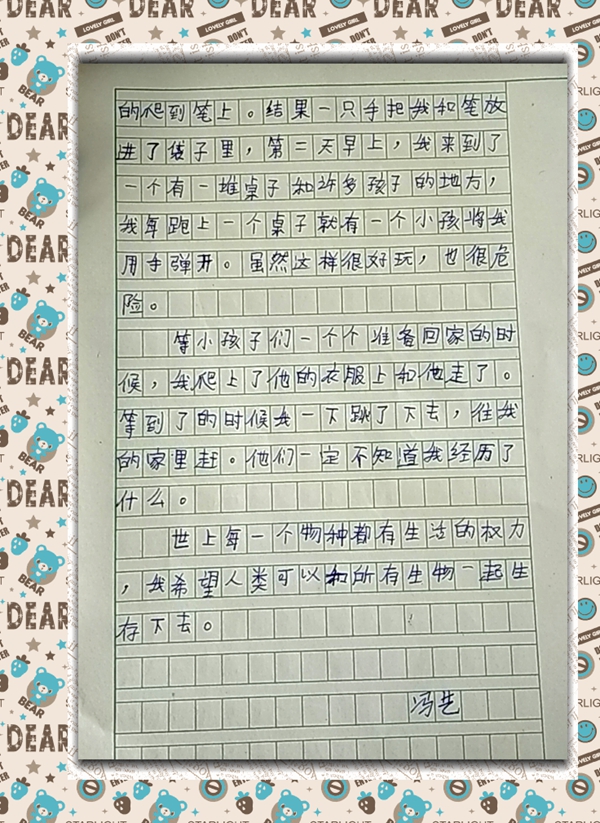 的爬到笔上。结果一只手把我和笔放
进了袋子里，第二天早上，我来到了
一个有一堆桌子和许多孩子的地方，
我每跑上一个桌子就有一个小孩将我
用手弹开。虽然这样很好玩，也很危
险。
等小孩子们一个个准备回家的时
候，我爬上了他的衣服上和他走了。
等到了的时候我一下跳了下去，往我
的家里赶。他们一定不知道我经历了
什么。
世上每一个物种都有生活的权力
，我希望人类可以和所有生物一起生
存下去。
DEAR
BEAR
LOVELY GIRL
DON'T